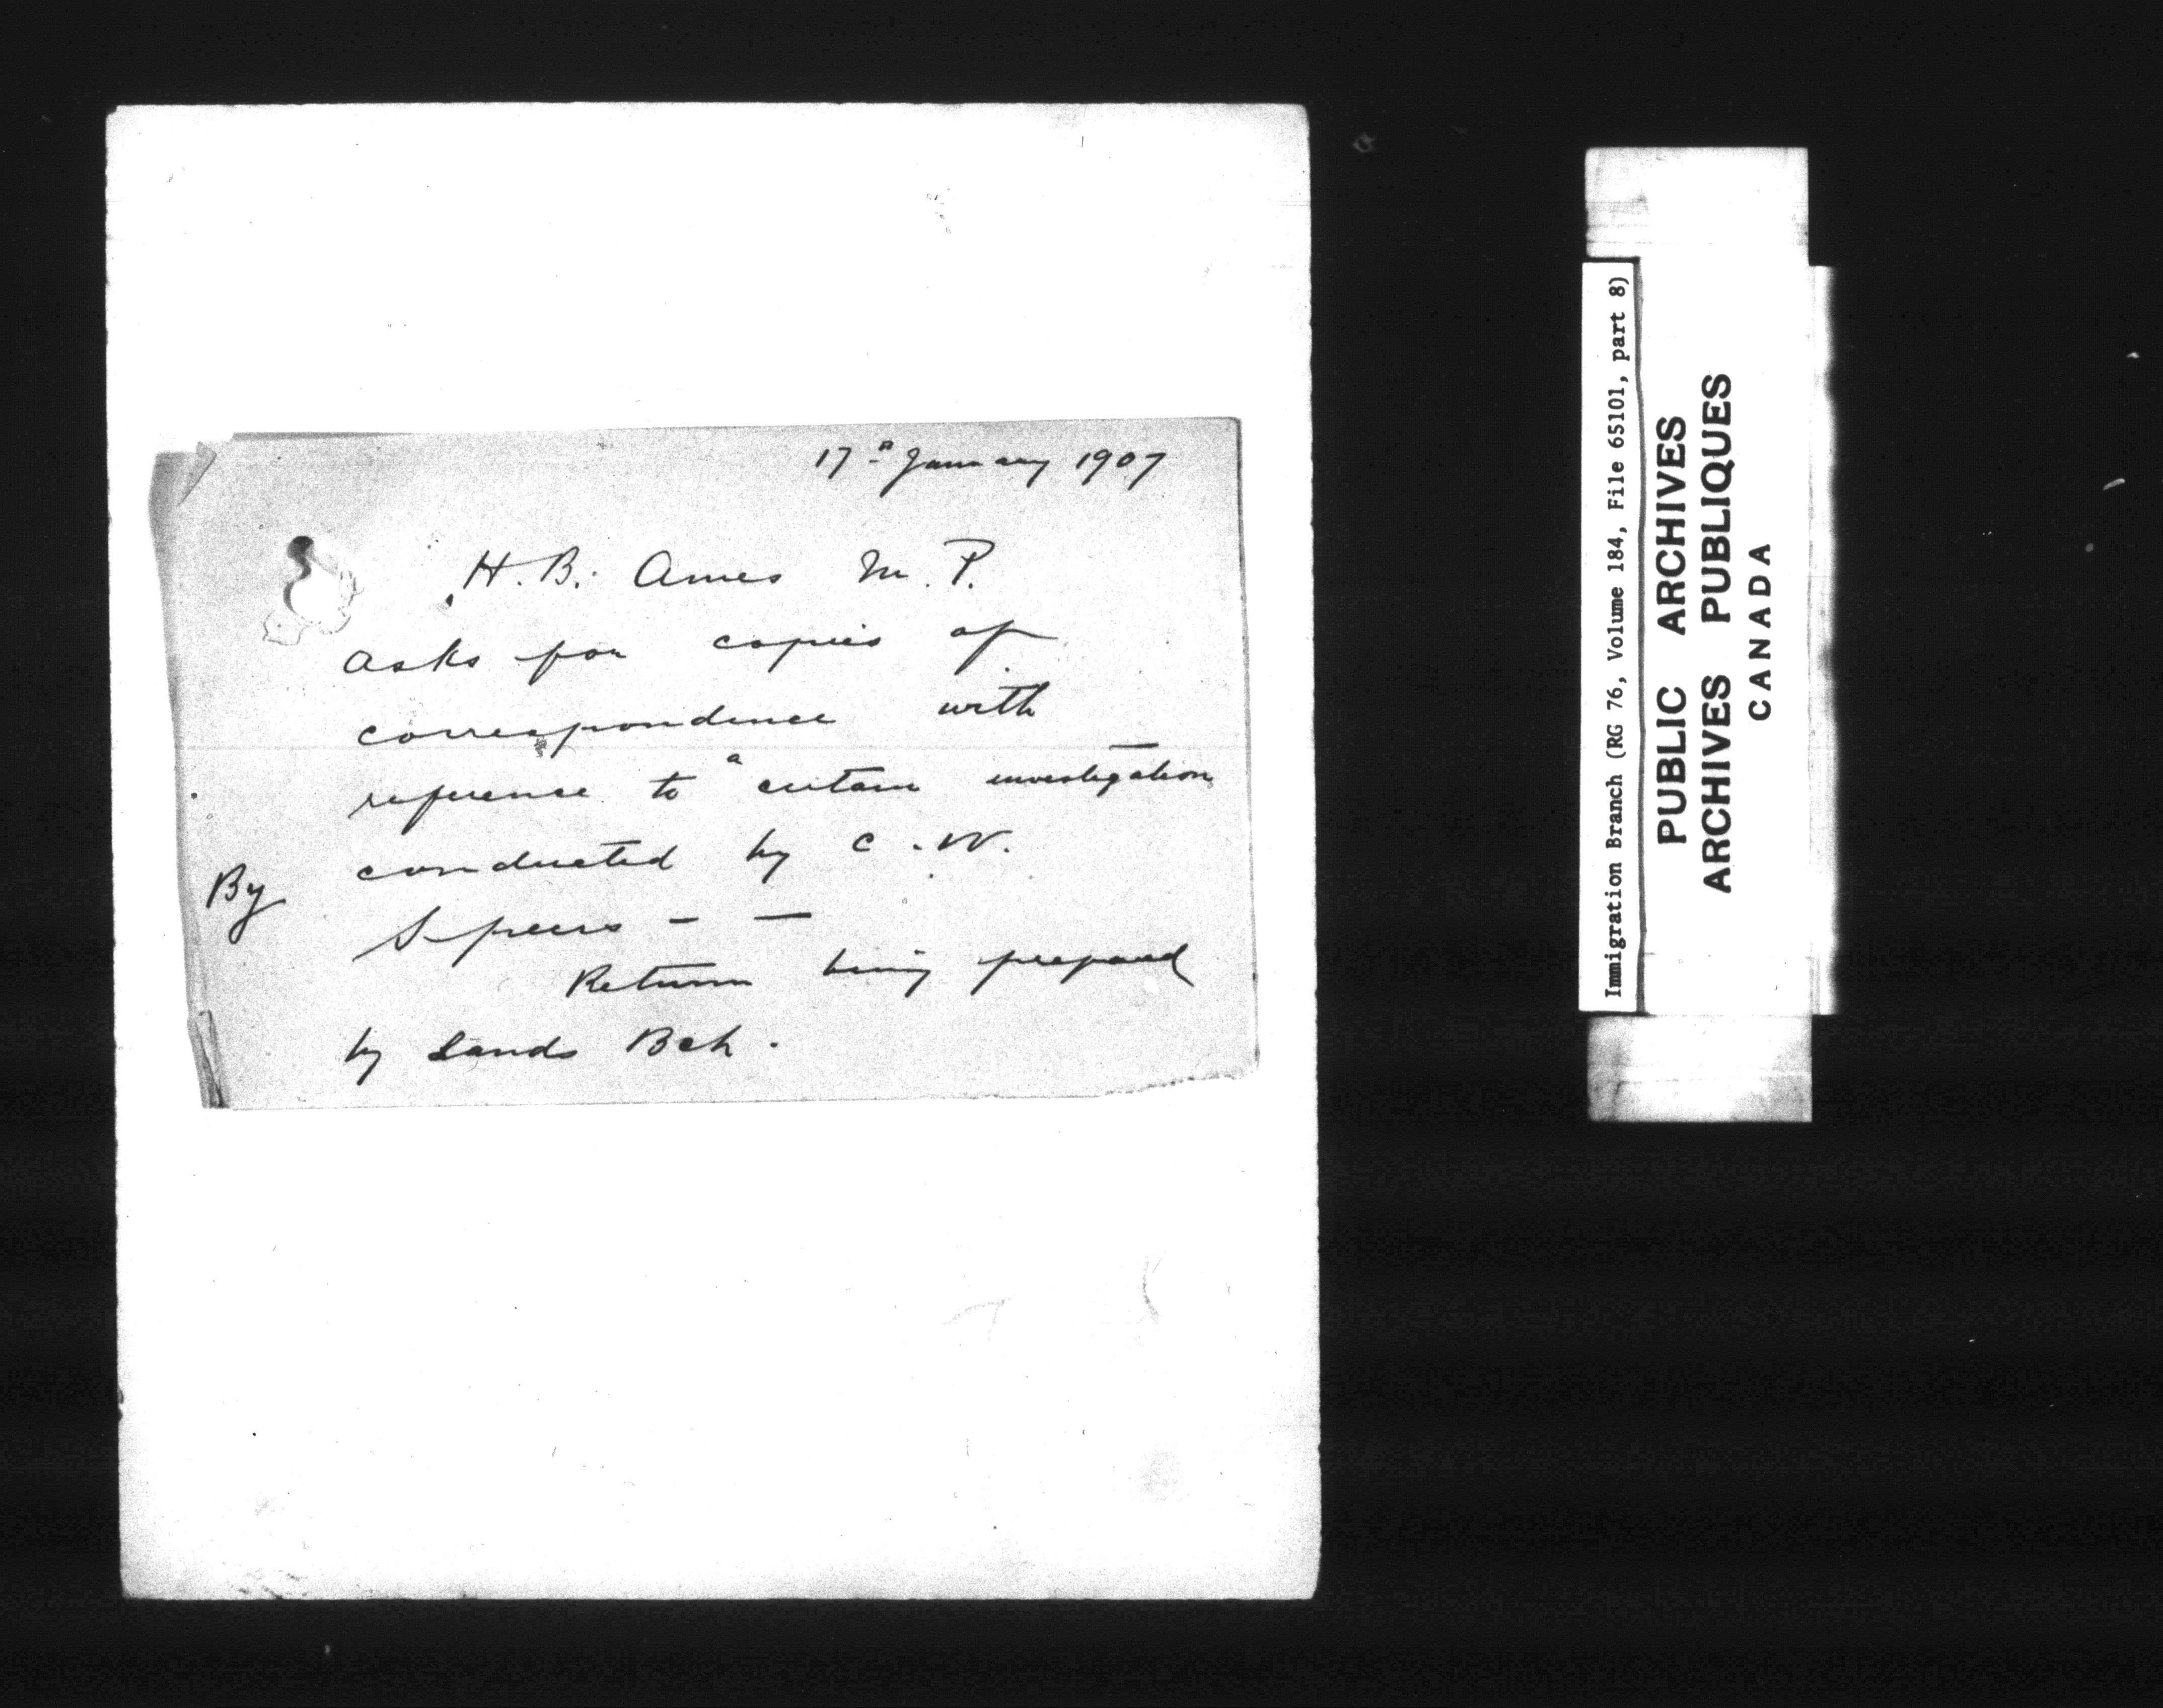 17th January 1907
H. B. Ames M. P.
asks for copies of
correspondence with
reference to a certain investigation
conducted by C. W.
By
Speers - -
Return being prepared
by Lands Bch.
Immigration Branch (RG 76, Volume 184, File 65101, part 8)
PUBLIC ARCHIVES
ARCHIVES PUBLIQUES
CANADA